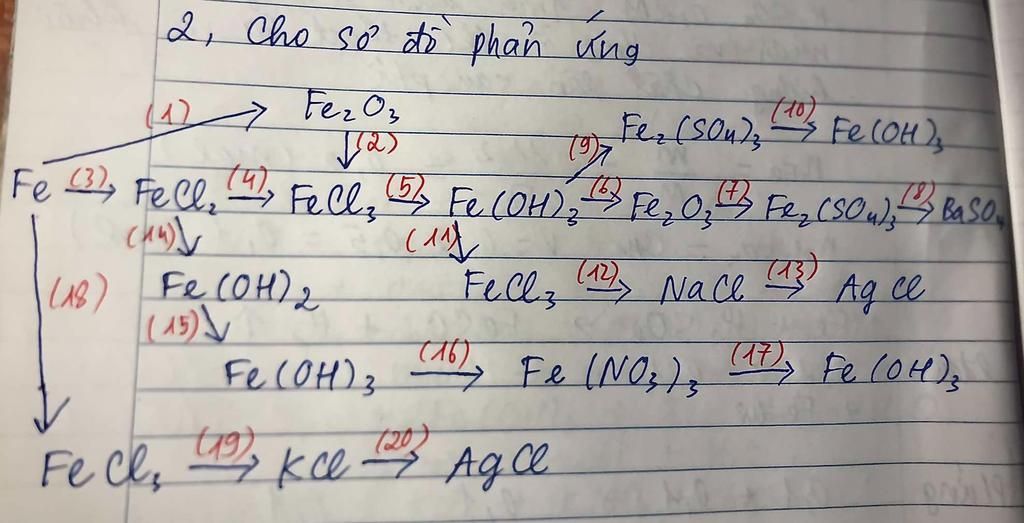 2, Cho sơ đồ phản ứng
(1) Fe₂O₃ Fe₂(SO₄)₃ (10)→ Fe(OH)₃
(2) (9)
Fe (3)→ FeCl₂ (4)→ FeCl₃ (5)→ Fe(OH)₃ (6)→ Fe₂O₃ (7)→ Fe₂(SO₄)₃ (8)→ BaSO₄
(14) (11)
(18) Fe(OH)₂ FeCl₃ (12)→ NaCl (13)→ AgCl
(15)
Fe(OH)₃ (16)→ Fe(NO₃)₃ (17)→ Fe(OH)₃
FeCl₃ (19)→ KCl (20)→ AgCl